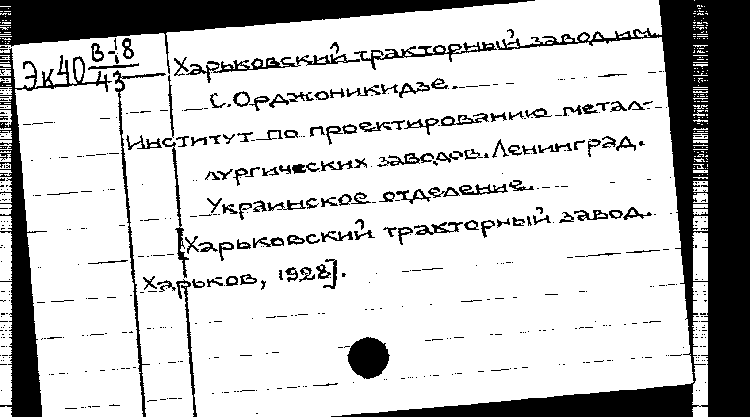 Эк40 В-18/43
Харьковский тракторный завод им.
С.Орджоникидзе.
Институт по проектированию метал-
лургических заводов. Ленинград.
Украинское отделение.
[Харьковский тракторный завод.
Харьков, 1928].